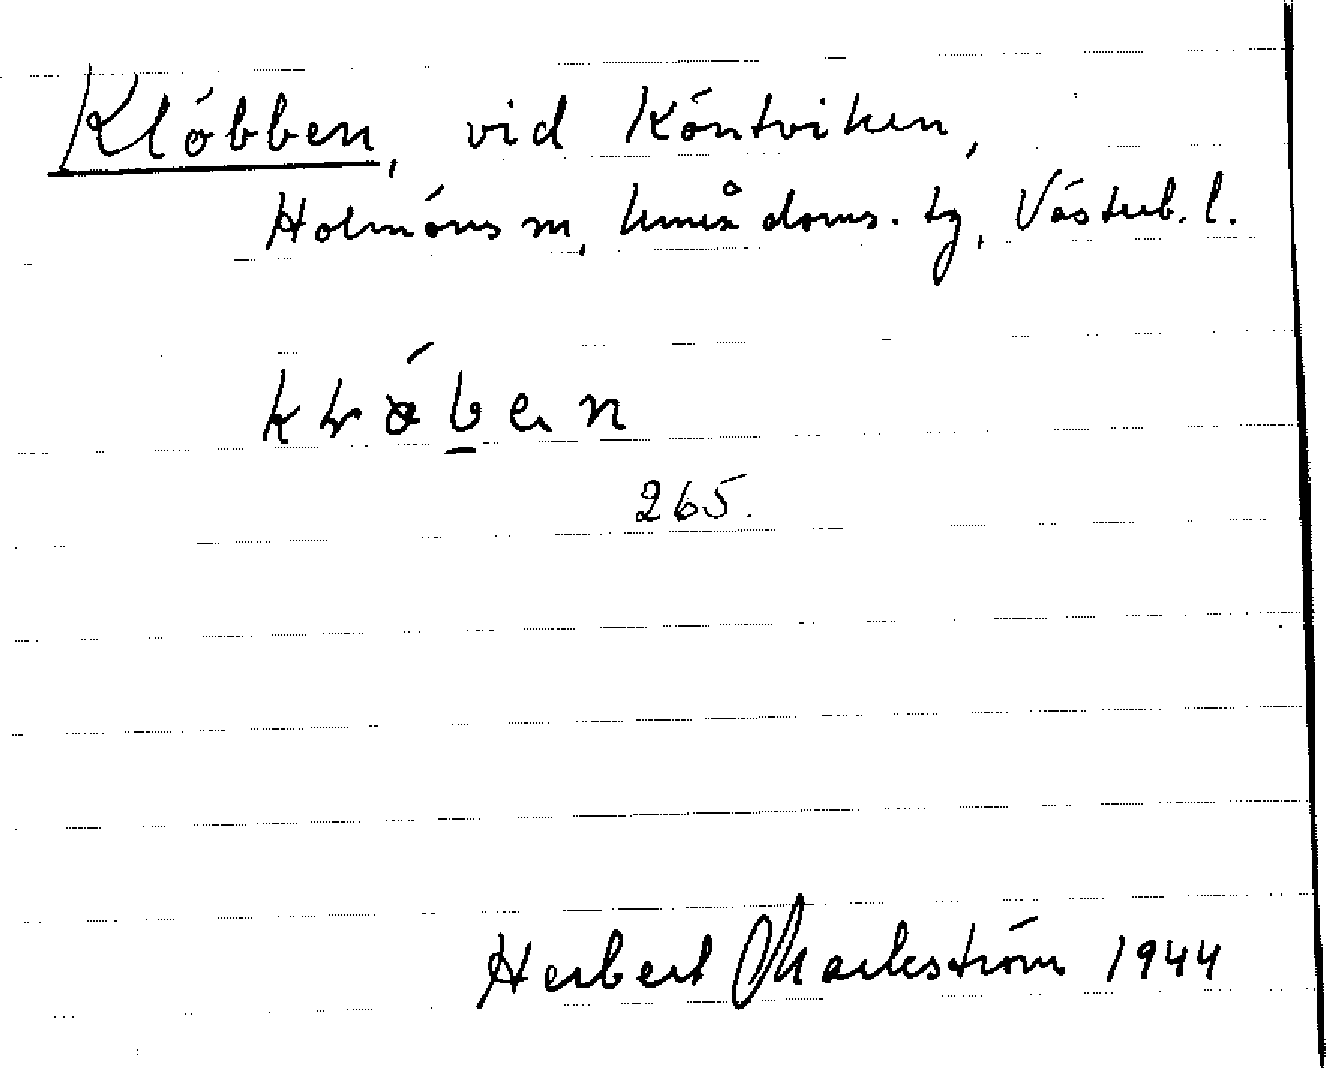 Klöbben, vid Köntviken,
Holmöns sn, Umeå doms. tg, Västerb. l.
265.
Herbert Markström 1944